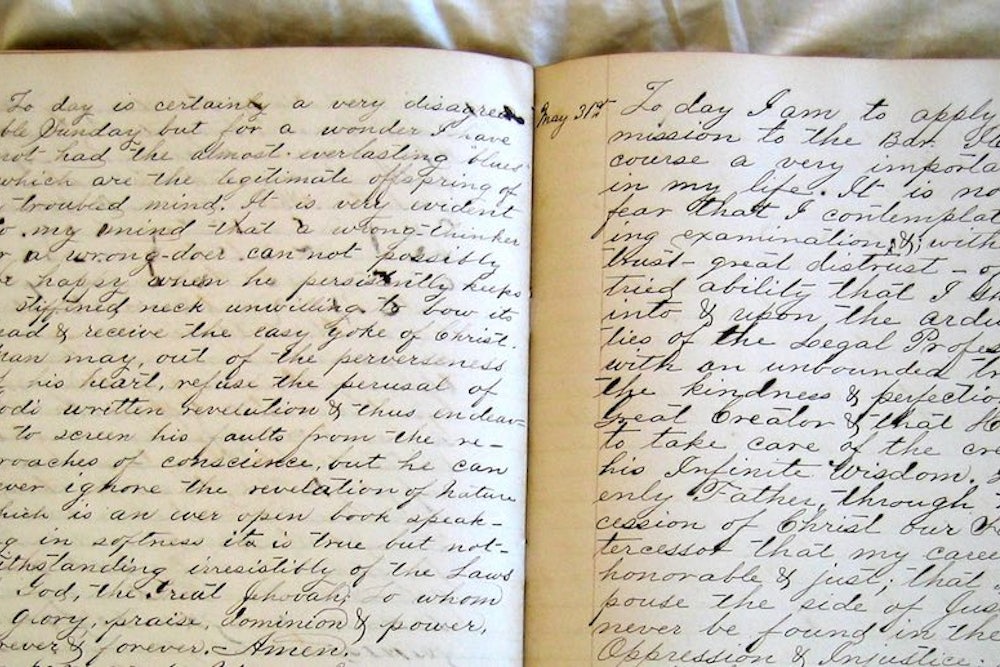 To day is certainly a very disagree-
ble Sunday but for a wonder I have
not had the almost everlasting blues
which are the legitimate offspring of
troubled mind. It is very evident
to my mind that a wrong-thinker
r a wrong-doer can not possibly
e happy when he persistently keeps
stiffened neck unwilling to bow its
ead & receive the easy yoke of Christ.
man may, out of the perverseness
his heart, refuse the perusal of
written revelation & thus endeav-
to screen his faults from the re-
roaches of conscience, but he can
ever ignore the revelation of nature
hich is an ever open book speak-
g in softness it is true but not-
ithstanding irresistibly of the Laws
God, the Great Jehovah, to whom
glory, praise, dominion & power,
rever & forever. - Amen.
May 31st
To day I am to apply
mission to the Bar.
course a very importa
in my life. It is no
fear that I contemplat
ing examination, & with
trust - great distrust -
tried ability that I
into & upon the ardu
ties of the Legal Profes
with an unbounded
the kindness & perfectio
Great Creator & that
to take care of the cre
his Infinite Wisdom.
enly Father, through
cession of Christ our
tercessor that my caree
honorable & just; that
pouse the side of Jus
never be found in the
Oppression & Injustice.